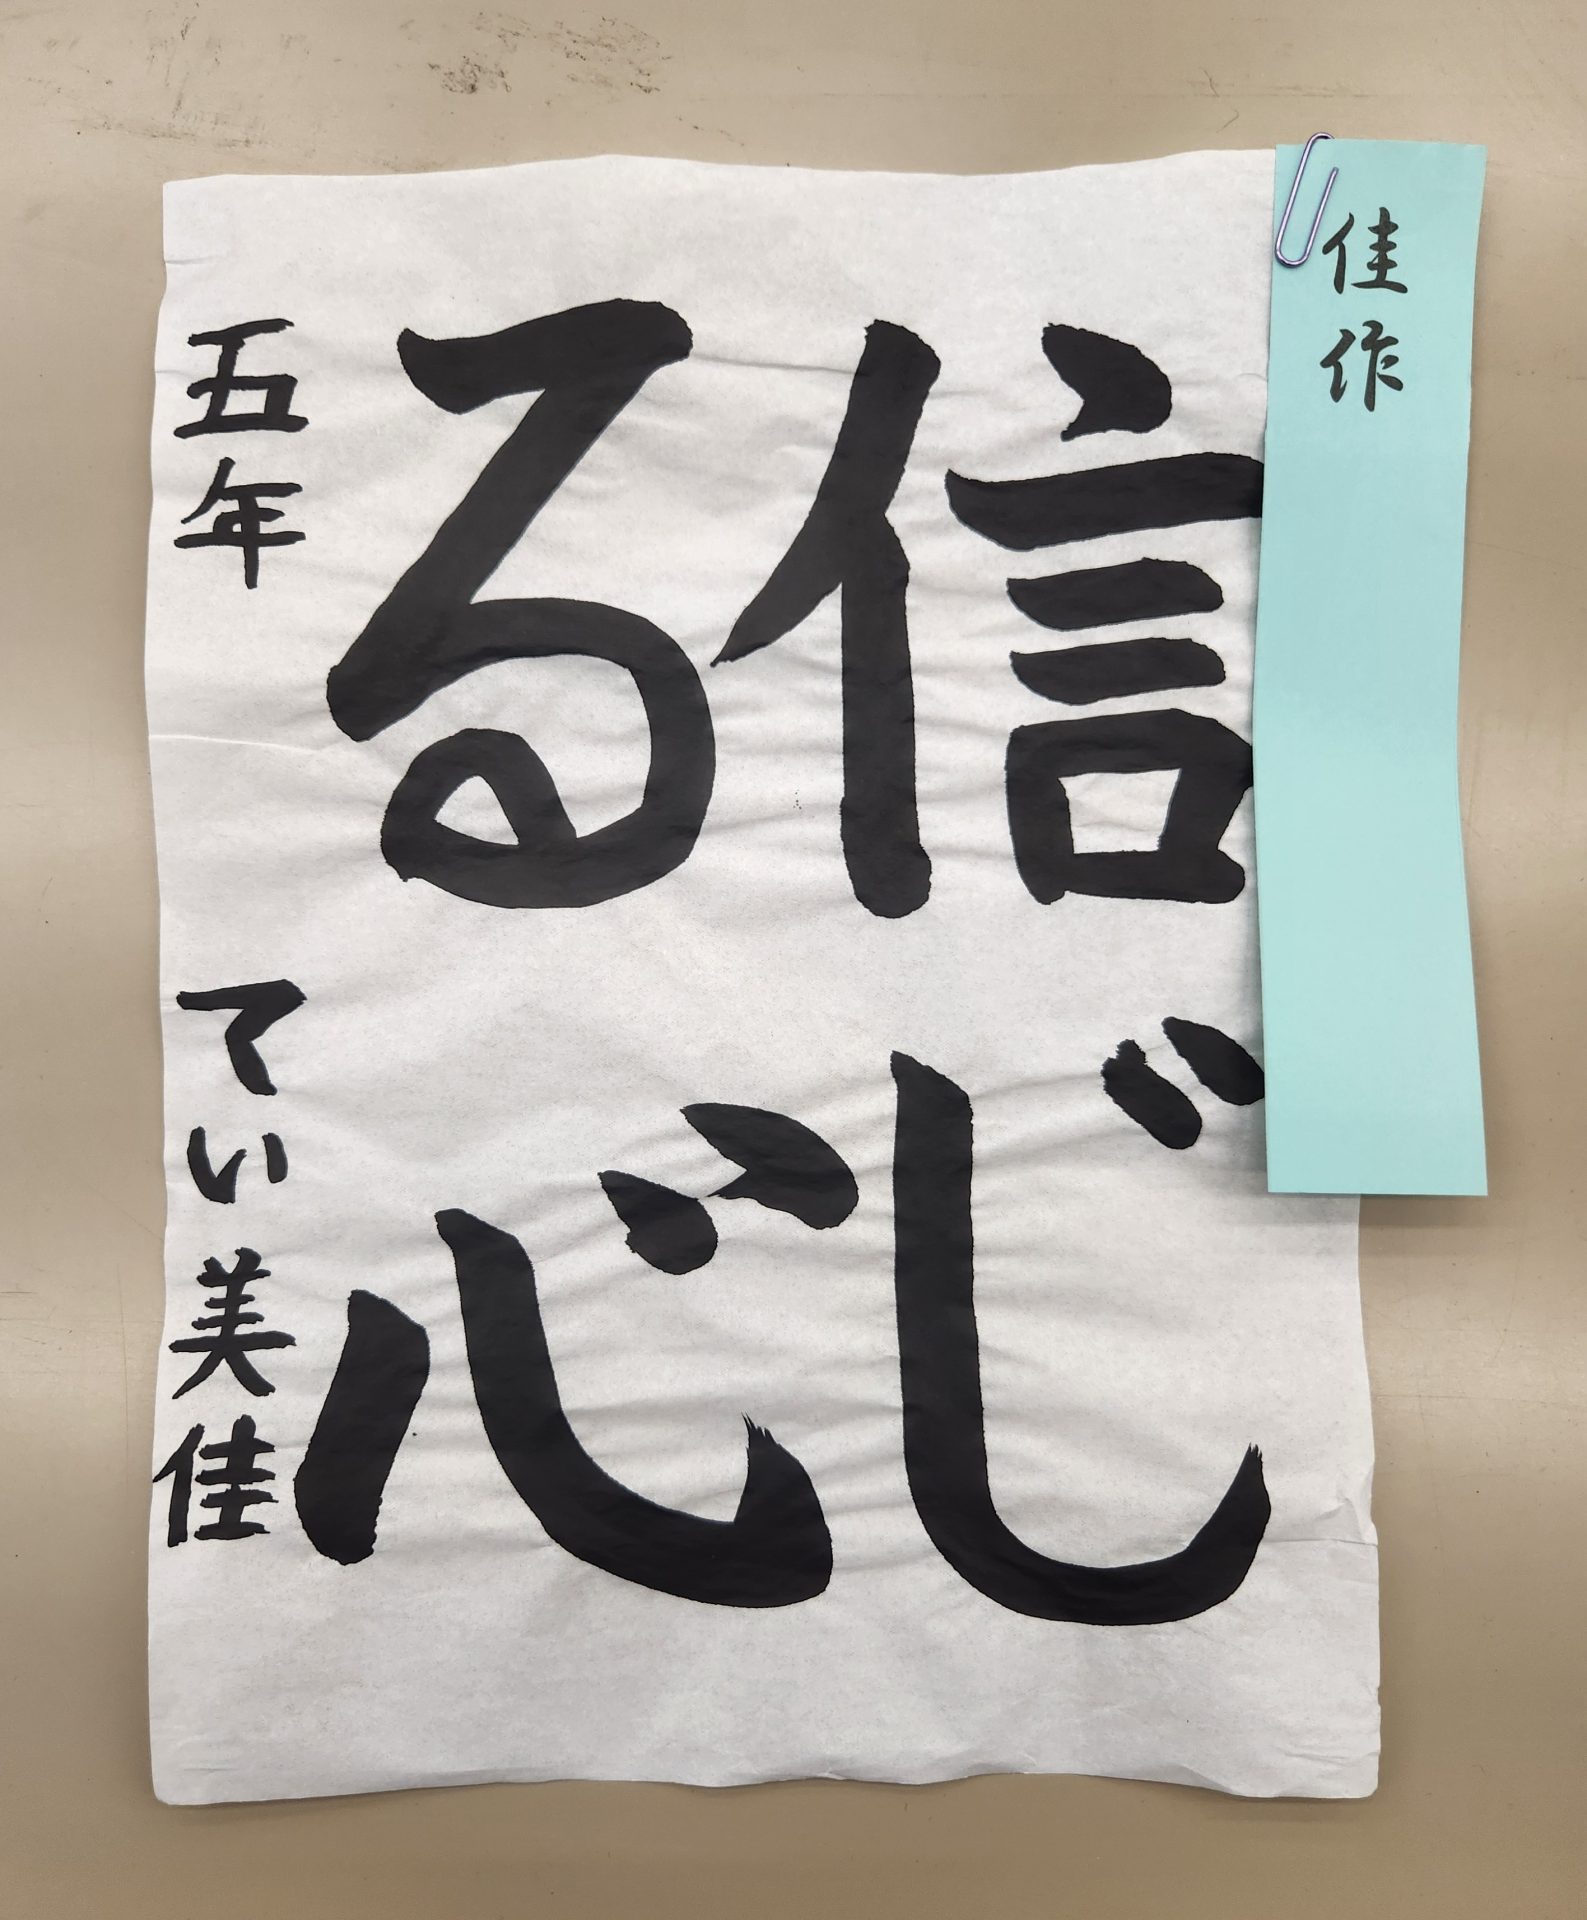 佳作
信じ
る心
五年 てい美佳